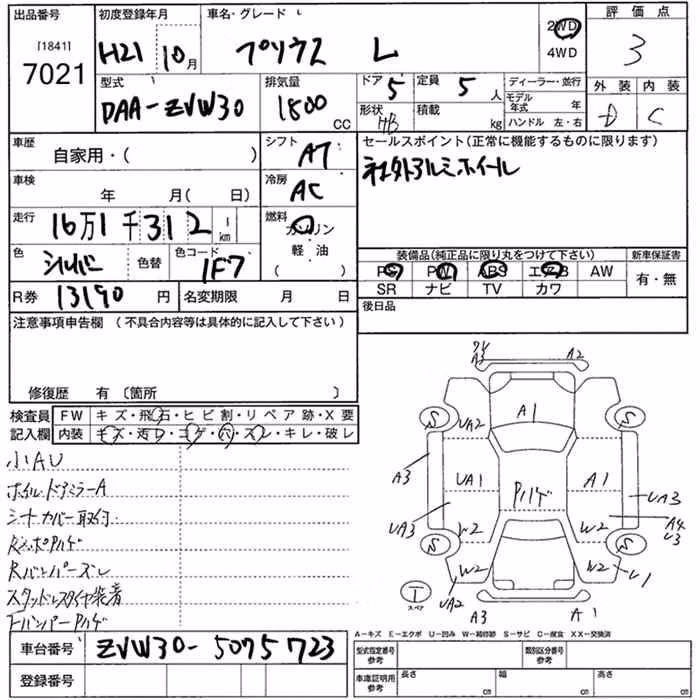 出品番号 初度登録年月 車名・グレード 評価点
[1841] 7021 H21 10月 プリウス L 2WD 4WD 3
型式 排気量 ドア 定員 ディーラー・並行 外装 内装
DAA-ZVW30 1800 CC 5 5人 モデル年式 年 D C
形状 HB 積載 kg ハンドル 左・右
車歴 自家用・( ) シフト AT セールスポイント(正常に機能するものに限ります)
社外アルミホイール
車検 年 月( 日) 冷房 AC
走行 16万1千312 km 燃料 ガソリン
軽・油
( )
色 シルバー 色替 色コード 1F7
装備品(純正品に限り丸をつけて下さい) 新車保証書
PS PW ABS エアB AW 有・無
SR ナビ TV カワ
R券 13190円 名変期限 月 日 後日品
注意事項申告欄 (不具合内容等は具体的に記入して下さい)
修復歴 有 〔箇所 〕
検査員 FW キズ・飛石・ヒビ割・リペア跡・X要
記入欄 内装 キズ・汚レ・コゲ・穴・スレ・キレ・破レ
小AU
ホイル・ドアミラーA
シートカバー取付
Rバンパーズレ
スタッドレスタイヤ装着
Fバンパーハゲ
A3 A2
A1
S S
UA2
A3 UA1 A1 UA3
UA3 W2 W2 A4
U3
S S
W2 W2 U1
UA2
T
スペア
A3 A1
A-キズ E-エクボ U-凹み W-補修跡 S-サビ C-腐食 XX-交換済
車台番号 ZVW30-5075723
型式指定番号 参考 類別区分番号 参考
車庫証明用 参考 長さ cm 幅 cm 高さ cm